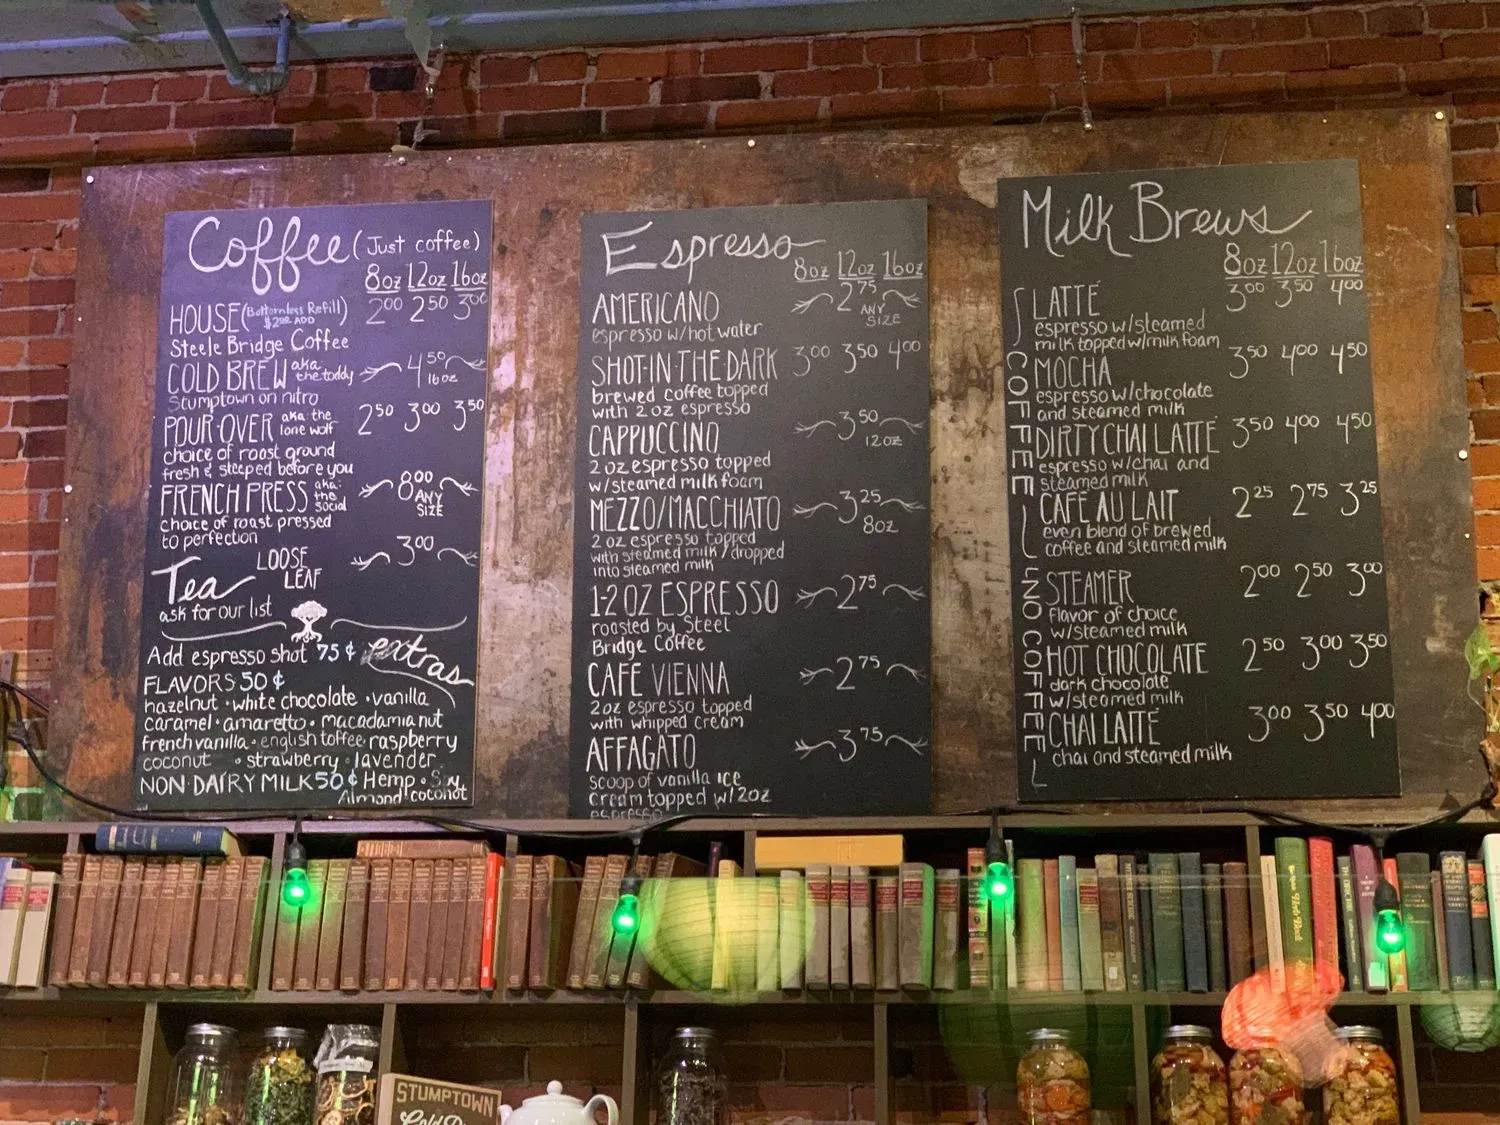 Coffee (Just coffee)
8oz 12oz 16oz
HOUSE (Bottomless Refill) 200 250 300
$2.00 ADD
Steele Bridge Coffee
COLD BREW aka the toddy 450
16oz
Stumptown on nitro
POUR·OVER aka the lone wolf 250 300 350
choice of roast ground
fresh & steeped before you
FRENCH PRESS aka: the social 800 ANY SIZE
choice of roast pressed
to perfection
Tea LOOSE LEAF 300
ask for our list
extras
Add espresso shot 75¢
FLAVORS 50¢
hazelnut · white chocolate · vanilla
caramel · amaretto · macadamia nut
french vanilla · english toffee raspberry
coconut · strawberry · lavender
NON·DAIRY MILK 50¢ Hemp · Soy
Almond coconut
Espresso
8oz 12oz 16oz
AMERICANO 275 ANY SIZE
espresso w/hot water
SHOT·IN·THE·DARK 300 350 400
brewed coffee topped
with 2 oz espresso
CAPPUCCINO 350
12oz
2 oz espresso topped
w/steamed milk foam
MEZZO/MACCHIATO 325
8oz
2 oz espresso topped
with steamed milk / dropped
into steamed milk
1-2 OZ ESPRESSO 275
roasted by Steel
Bridge Coffee
CAFE VIENNA 275
2oz espresso topped
with whipped cream
AFFAGATO 375
scoop of vanilla ice
cream topped w/ 2oz
espresso
Milk Brews
8oz 12oz 16oz
COFFEE
LATTE 300 350 400
espresso w/steamed
milk topped w/milk foam
MOCHA 350 400 450
espresso w/chocolate
and steamed milk
DIRTY CHAI LATTE 350 400 450
espresso w/chai and
steamed milk
CAFE AU LAIT 225 275 325
even blend of brewed
coffee and steamed milk
NO COFFEE
STEAMER 200 250 300
flavor of choice
w/steamed milk
HOT CHOCOLATE 250 300 350
dark chocolate
w/steamed milk
CHAI LATTE 300 350 400
chai and steamed milk
STUMPTOWN